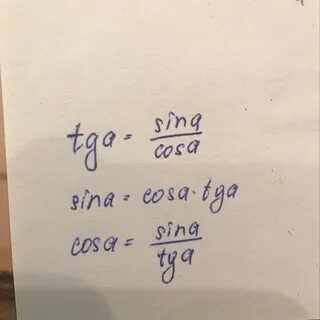 tga = sina/cosa
sina = cosa · tga
cosa = sina/tga